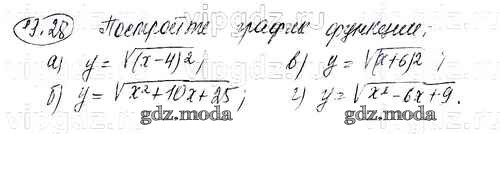 17.28 Постройте график функции:
а) y = √(x-4)2; в) y = √(x+6)2;
б) y = √x²+10x+25; г) y = √x²-6x+9.
gdz.moda gdz.moda